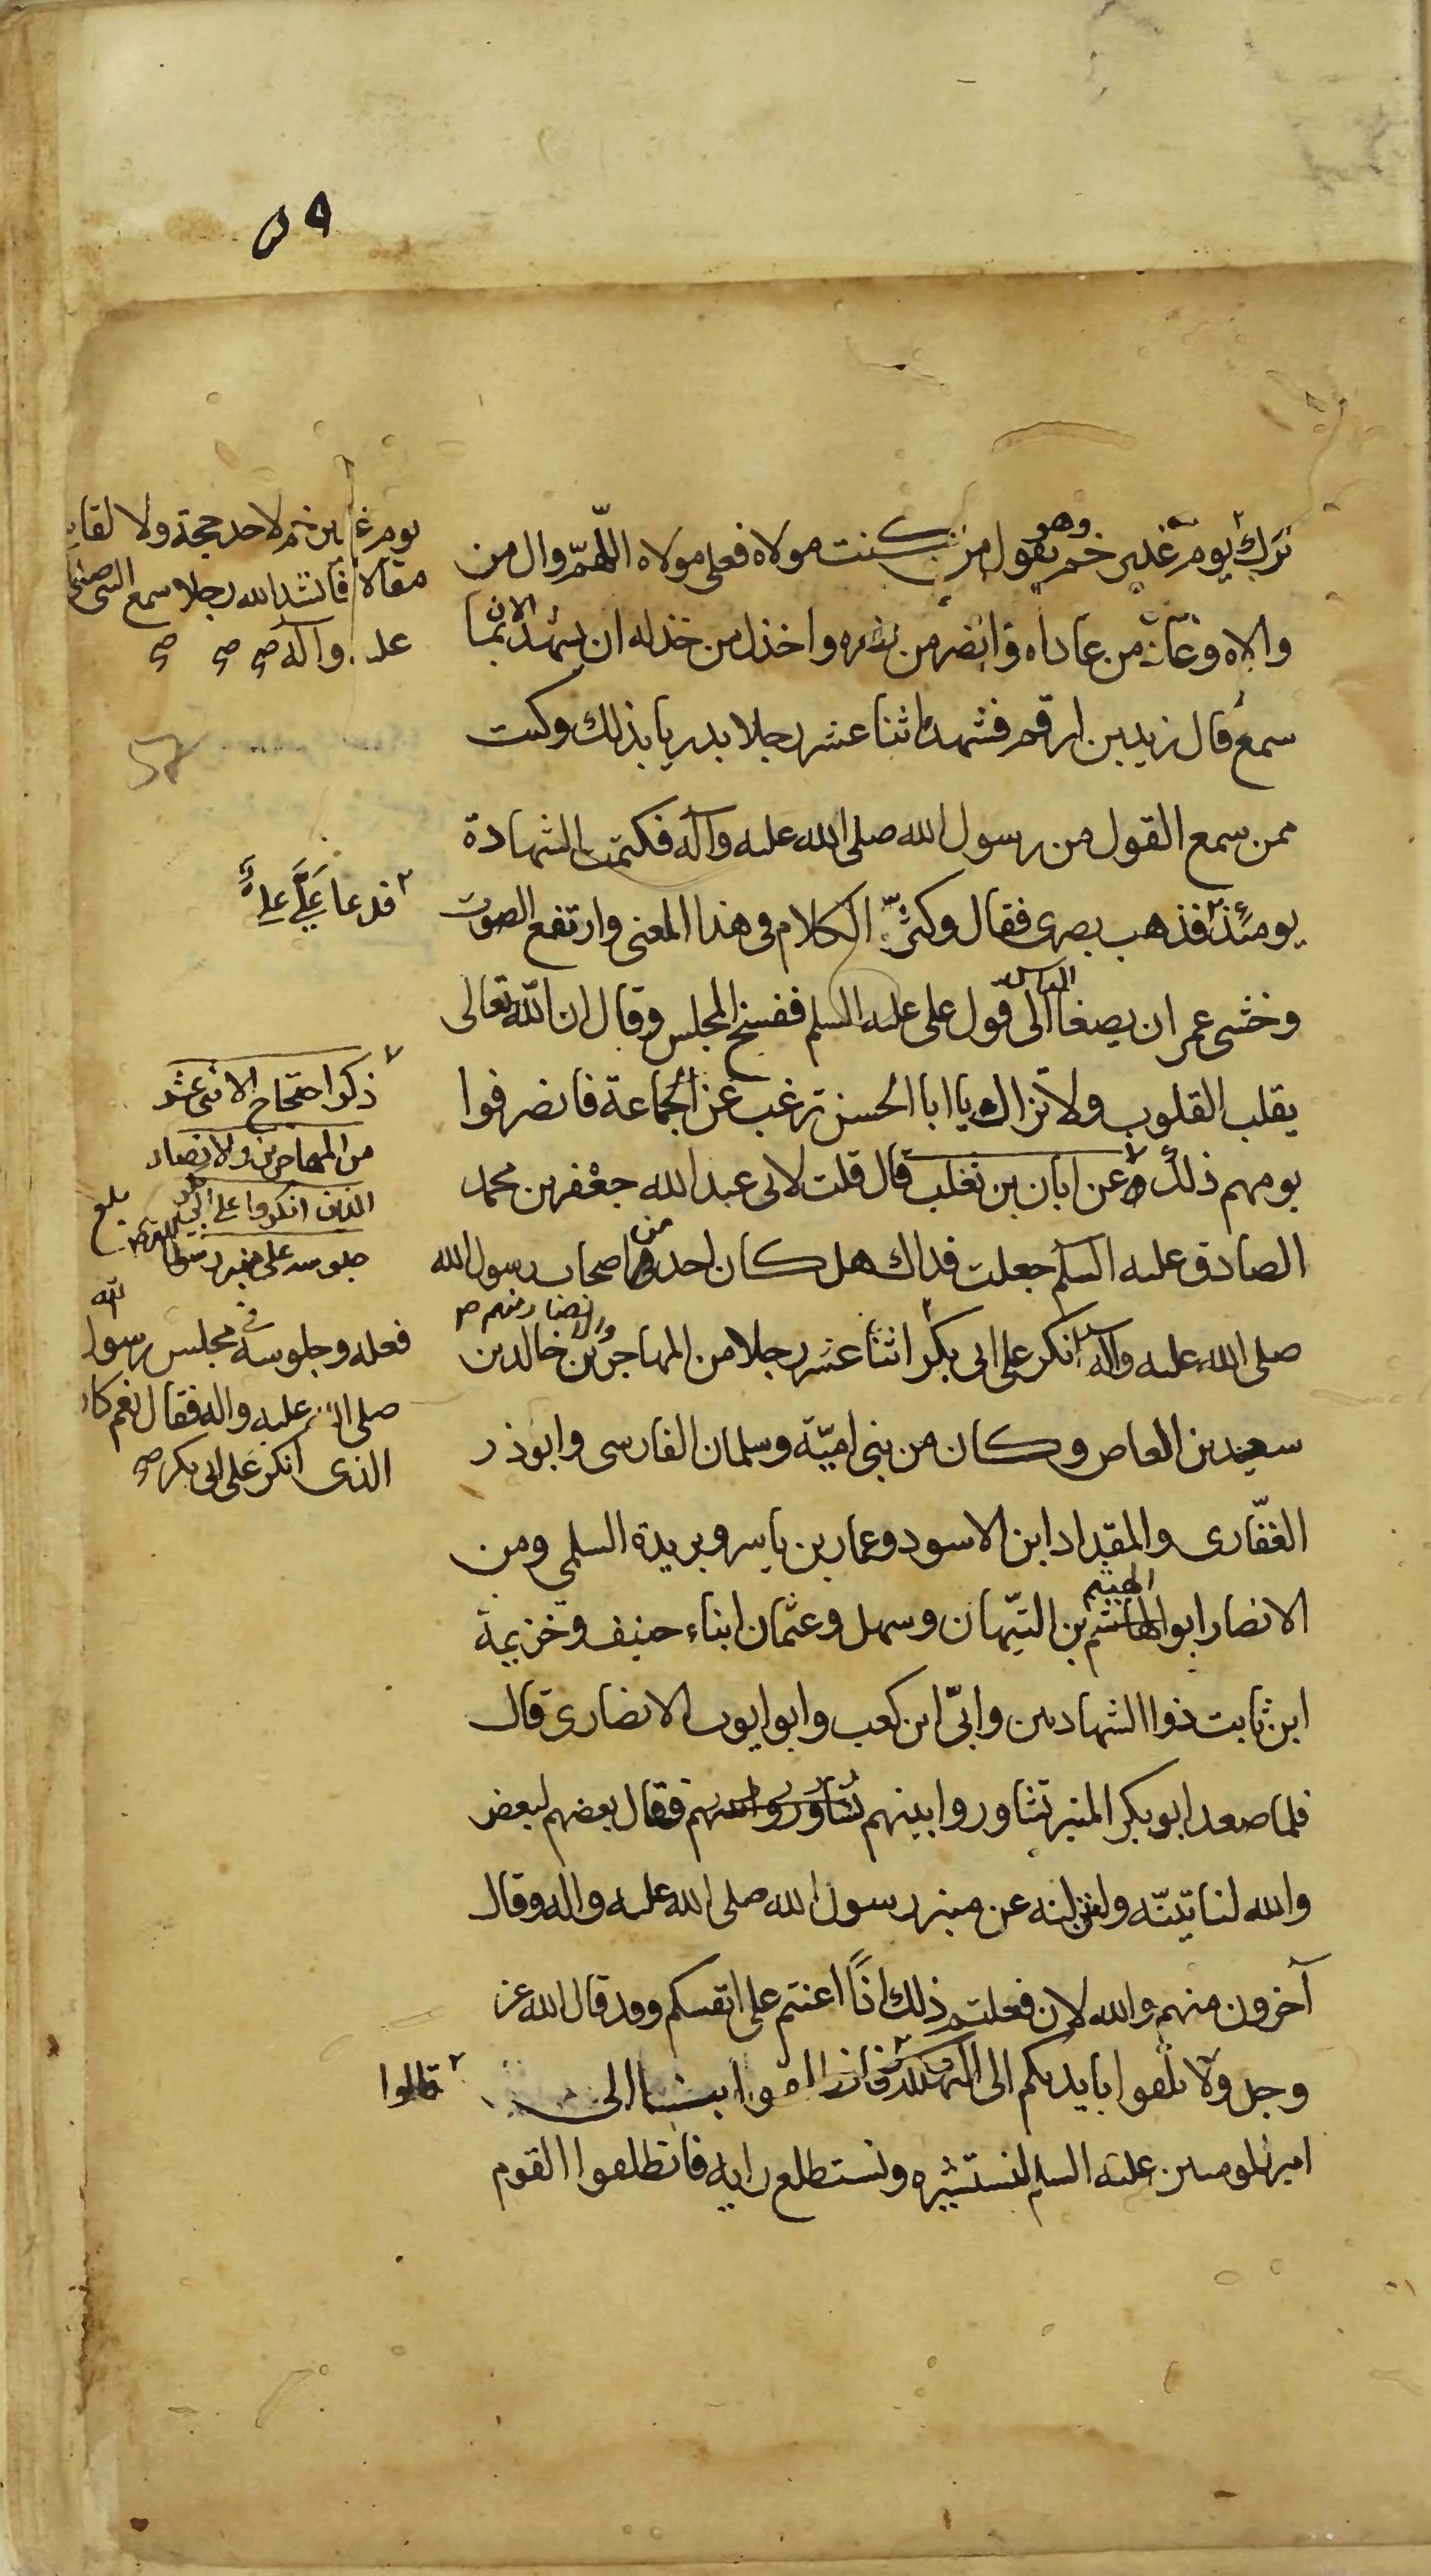 ٥٩
ترك يوم غدير خم وهو يقول من كنت مولاه فعلى مولاه اللهمّ وال من
والاه وعاد من عاداه وانصر من نصره واخذل من خذله ان يشهد الان بما
سمع قال زيد بن ارقم فشهد اثنا عشر رجلا بدريا بذلك وكنت
ممن سمع القول من رسول الله صلى الله عليه وآله فكتمت الشهادة
يومئذ فذهب بصرى فقال وكثر الكلام فى هذا المعنى وارتفع الصوت
وخشى عمر ان يصغا الناس الى قول على عليه السلم ففسخ المجلس وقال ان الله تعالى
يقلب القلوب ولا تزال يا ابا الحسن ترغب عن الجماعة فانصرفوا
يومهم ذلك وعن ابان بن تغلب قال قلت لابى عبد الله جعفر بن محمد
الصادق عليه السلم جعلت فداك هل كان احد من اصحاب رسول الله
صلى الله عليه وآله انكر على ابى بكر اثنا عشر رجلا من المهاجرين والانصار منهم خالد بن
سعيد بن العاص وكان من بنى اميّة وسلمان الفارسى وابوذر
الغفّارى والمقداد ابن الاسود وعمار بن ياسر وبريدة السلمي ومن
الانصار ابو الهاشم الهيثم بن التيّهان وسهل وعثمان ابناء حنيف وخزيمة
ابن ثابت ذوا الشهادتين وابىّ ابن كعب وابو ايوب الانصارى قال
فلما صعد ابو بكر المنبر تشاوروا بينهم فقال بعضهم لبعض
والله لناتينّه ولننزلنه عن منبر رسول الله صلى الله عليه واله وقال
آخرون منهم والله لان فعلتم ذلك اذاً اعنتم على انفسكم وقد قال الله عز
وجل ولا تلقوا بايديكم الى التهلكة فانطلقوا بنا الى
امير المومنين عليه السلم لنستشيره ونستطلع رايه فانطلقوا القوم
يوم غدير خم لاحد حجة ولا لقايل
مقالا فانشد الله رجلا سمع النبى صلى
عليه وآله ص ص ص
فدعا علَىَّ علىٌّ
ذكر احتجاج الاثنى عشر
من المهاجرين والانصار
الذين انكروا على ابى بكر
جلوسه على منبر رسول الله
بلغ
فعله وجلوسه فى مجلس رسول الله
صلى الله عليه واله فقال نعم كان
الذى انكر على ابى بكر ص
قالوا